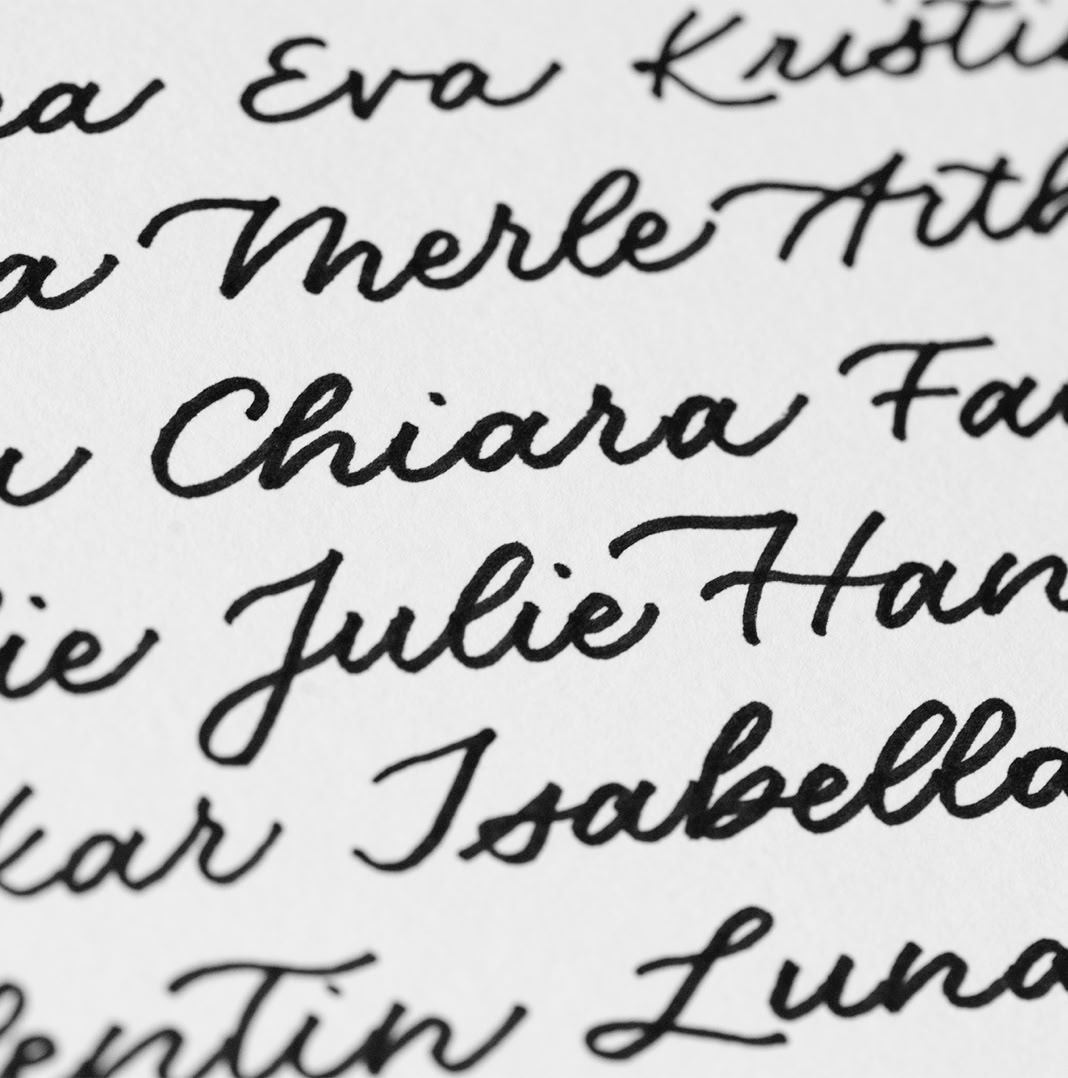 na Eva Kristi
a Merle Arth
u Chiara Fa
lie Julie Han
kar Isabella
lentin Luna